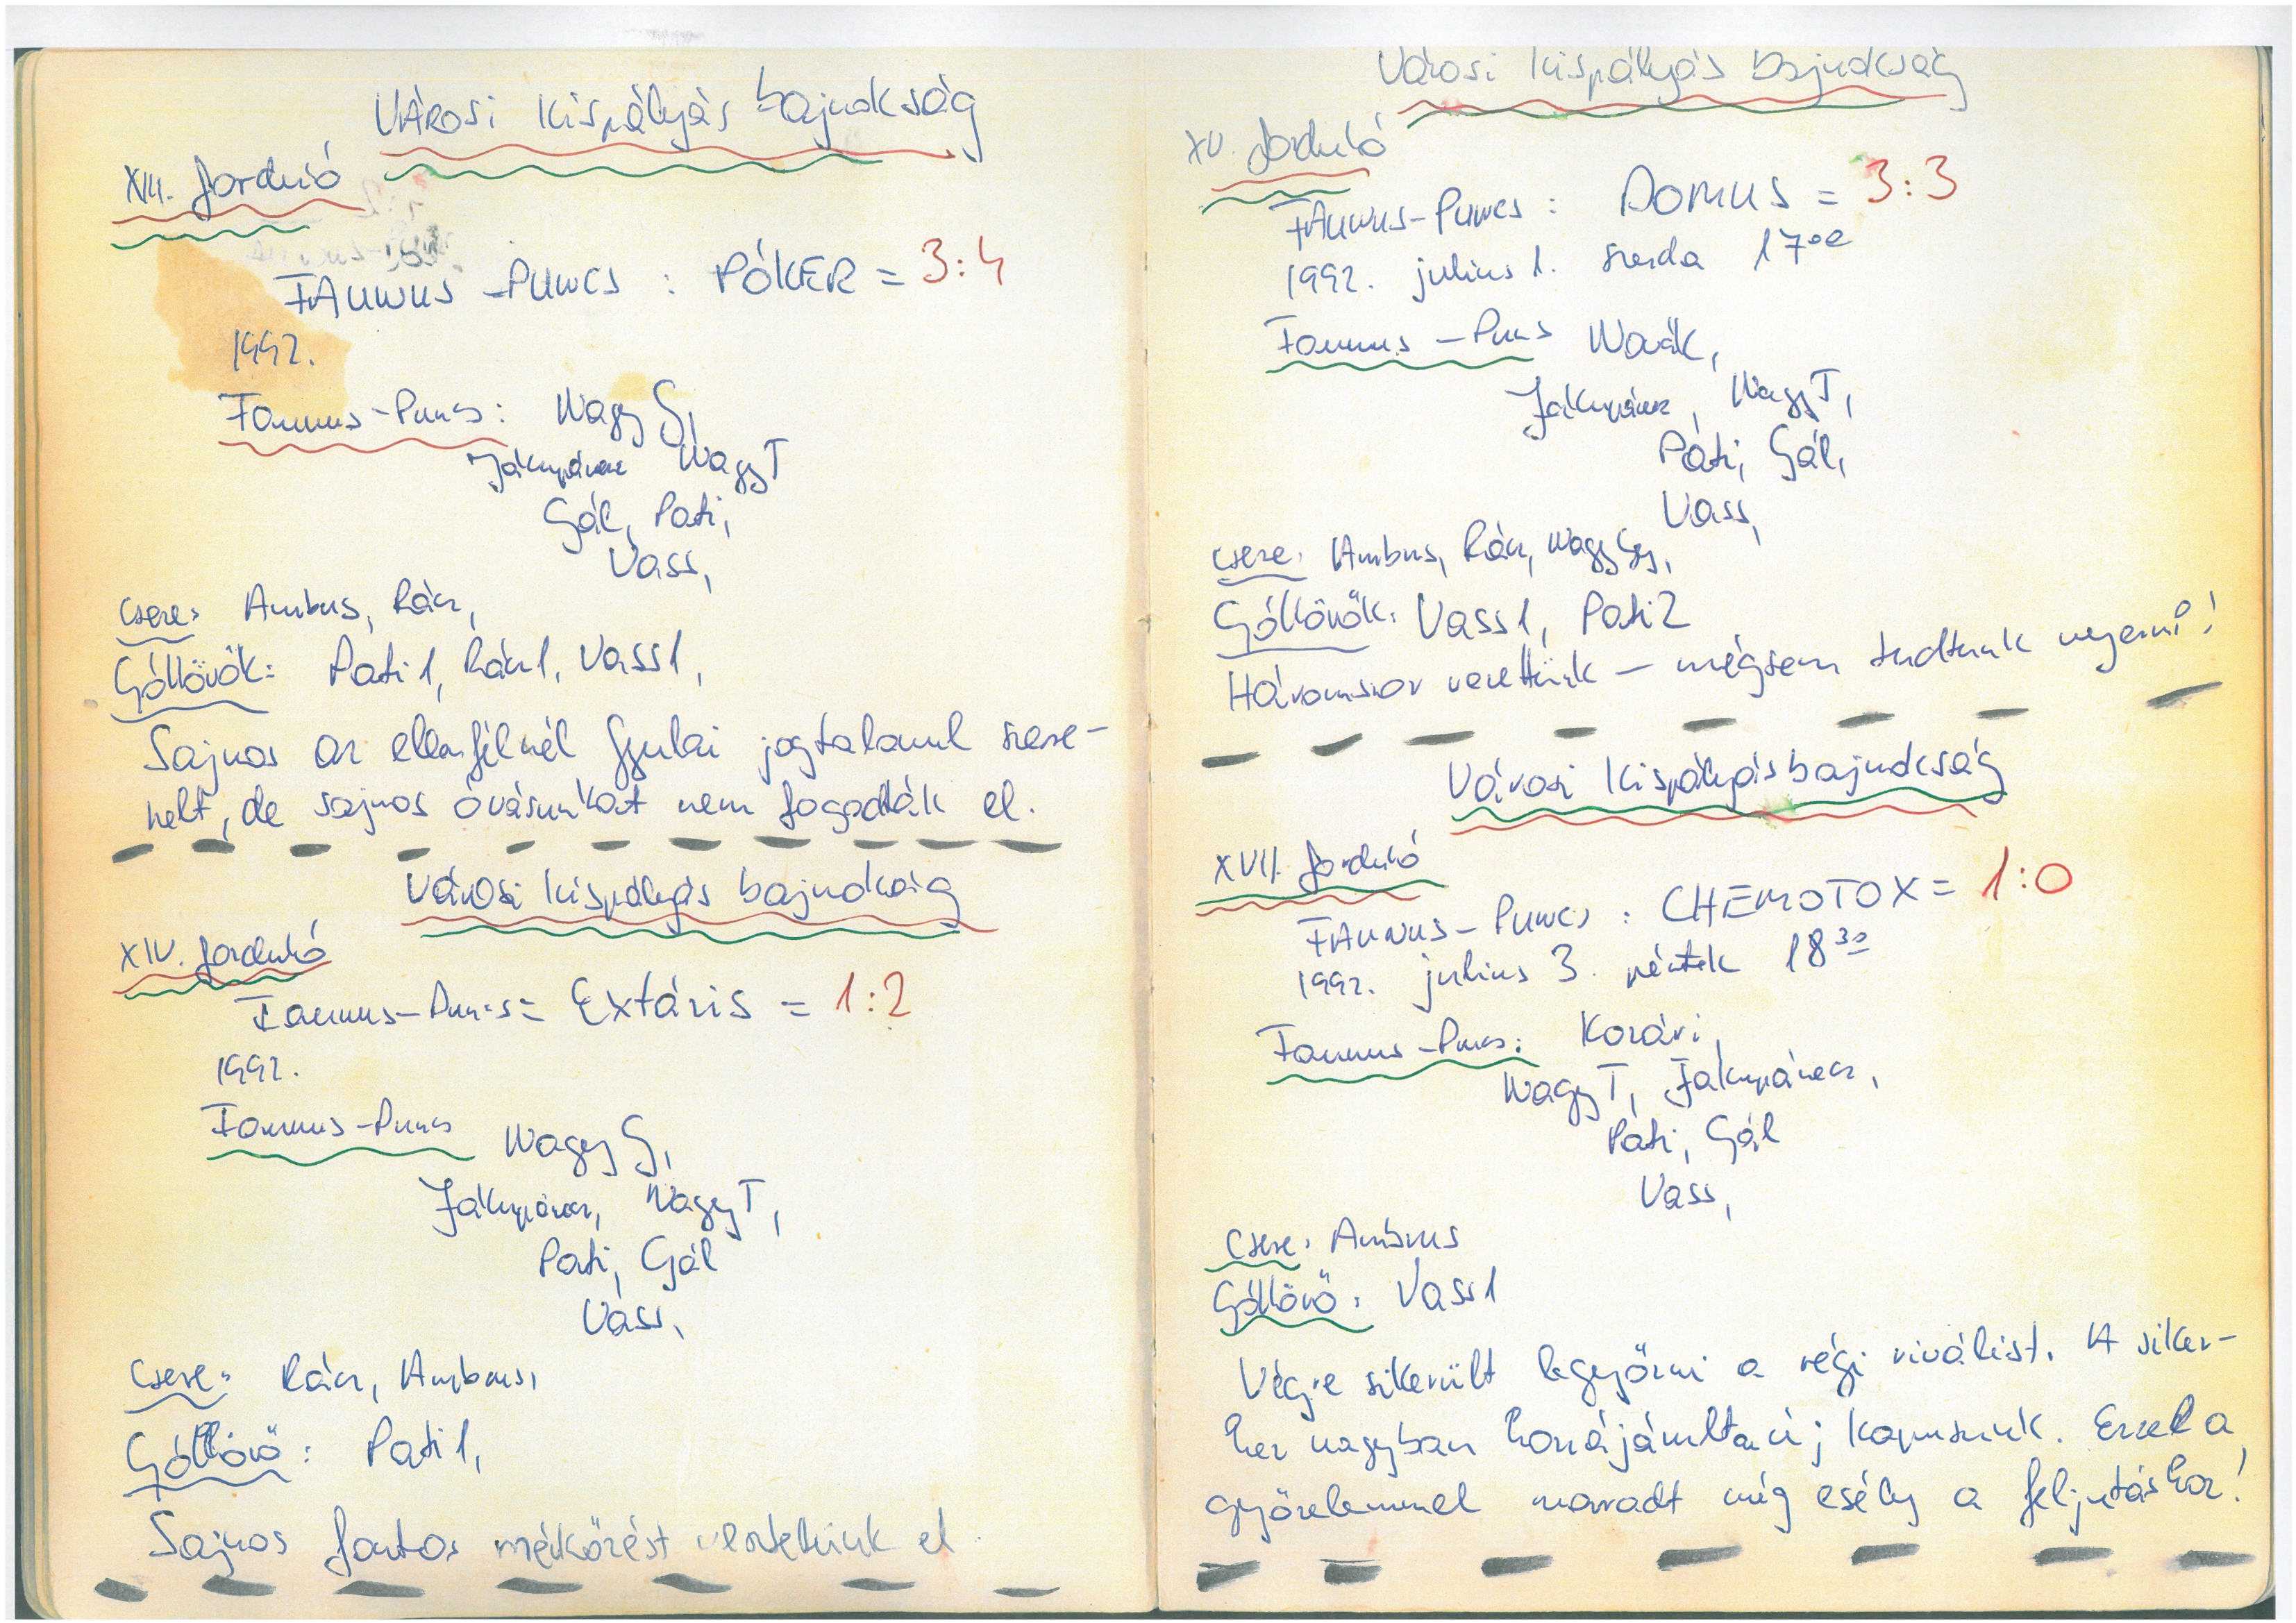 Városi kispályás bajnokság
XIII. forduló
FAUNUS-PUNCS : PÓKER = 3:4
1992.
Faunus-Puncs: Nagy G,
Jákupánecz Nagy T
Gál, Pati,
Vass,
Csere: Ambrus, Rácz,
Góllövők: Pati 1, Rácz 1, Vass 1,
Sajnos az ellenfélnél Gyulai jogtalanul szere-
pelt, de sajnos óvásunkat nem fogadták el.
Városi kispályás bajnokság
XIV. forduló
Faunus-Puncs = Extáris = 1:2
1992.
Faunus-Puncs Nagy G,
Nagy T,
Pati, Gál
Vass,
Csere: Rácz, Ambrus,
Góllövő: Pati 1,
Sajnos fontos mérkőzést vesztettünk el.
Városi kispályás bajnokság
XV. forduló
FAUNUS-PUNCS : DOMUS = 3:3
1992. julius 1. szerda 17°°
Faunus-Puncs Novák,
Nagy T,
Pati, Gál,
Vass,
Csere: Ambrus, Rácz, Nagy Gy,
Góllövők: Vass 1, Pati 2
Háromszor vezettünk – mégsem tudtunk nyerni!
Városi kispályás bajnokság
XVII. forduló
FAUNUS-PUNCS : CHEMOTOX = 1:0
1992. julius 3. péntek 18³⁰
Faunus-Puncs: Kozári,
Nagy T, Jakupánecz,
Pati, Gál
Vass,
Csere: Ambrus
Góllövő: Vass 1
Végre sikerült legyőzni a régi riválist. A siker-
hez nagyban hozzájárult az új kapusunk. Ezzel a
győzelemmel maradt még esély a feljutáshoz!